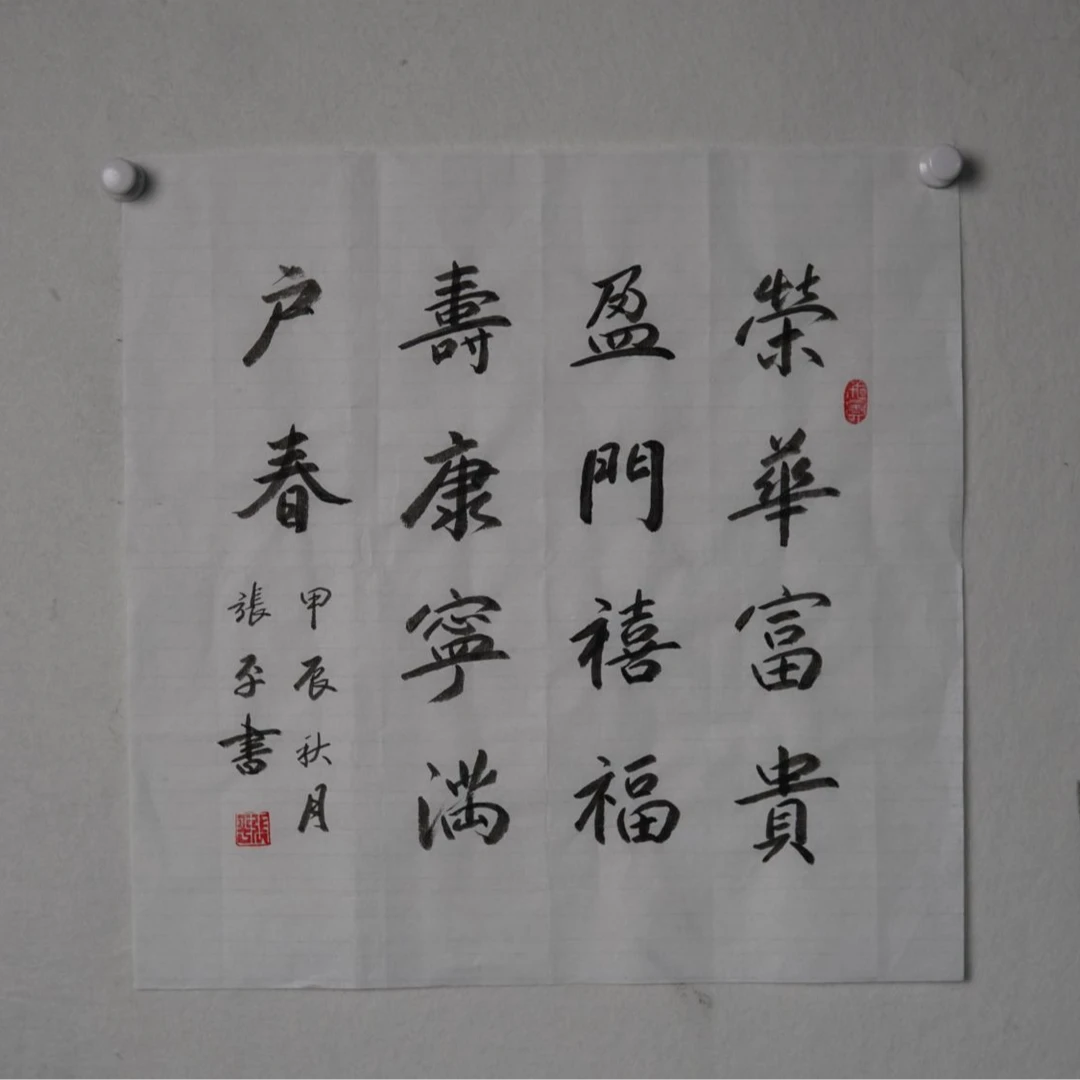 榮華富貴
盈門禧福
壽康寧滿
户春
甲辰秋月
張平書